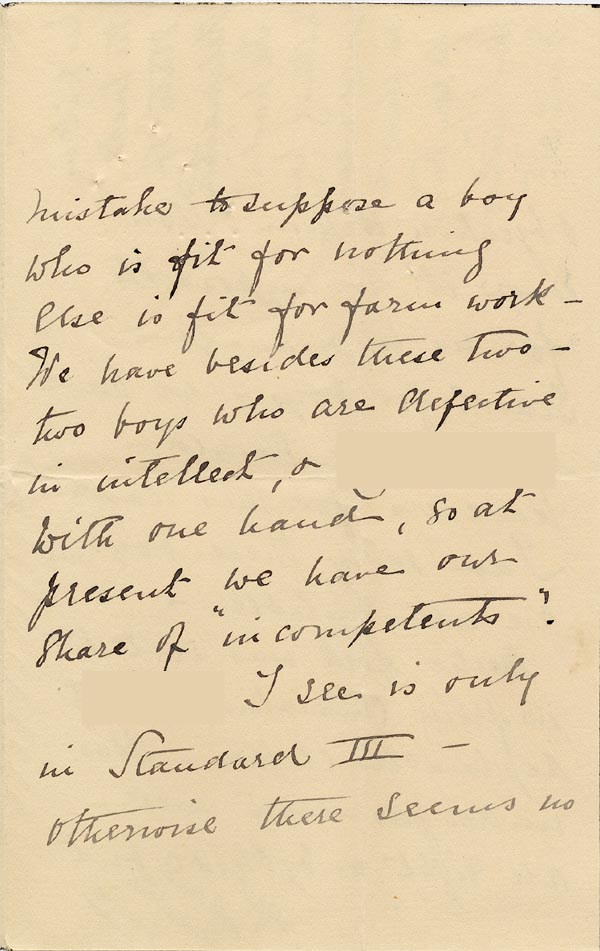 mistake to suppose a boy
who is fit for nothing
else is fit for farm work –
We have besides these two –
two boys who are defective
in intellect, &
with one hand, so at
present we have our
share of "incompetents".
I see is only
in Standard III –
otherwise there seems no